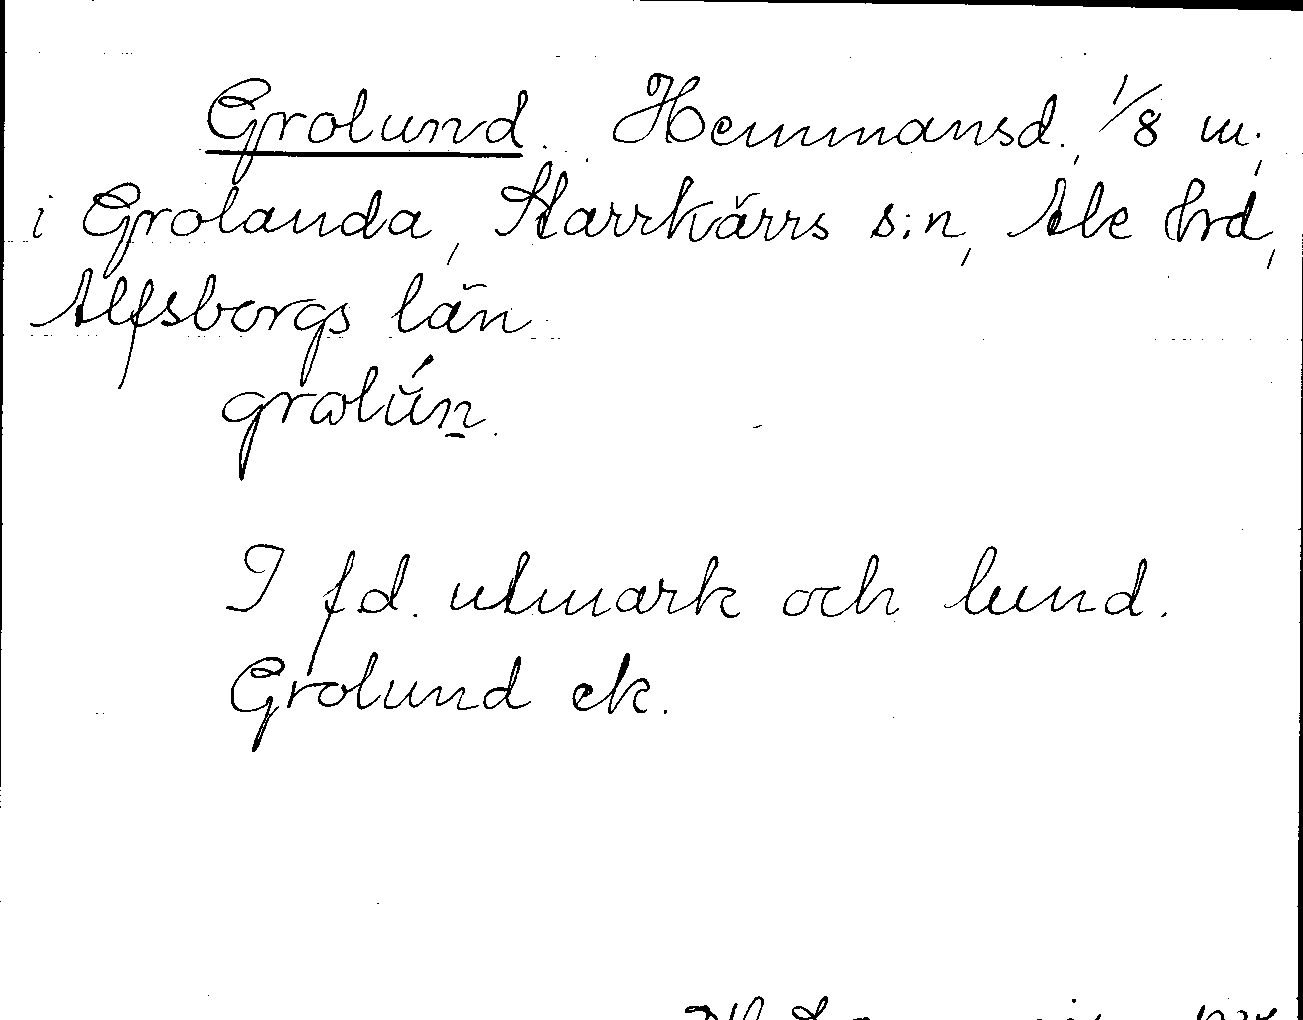 Grolund. Hemmansd., 1/8 m.,
i Grolanda, Starrkärrs s:n, Ale hrd,
Älfsborgs län.
grolún.
I f.d. utmark och lund.
Grolund ek.